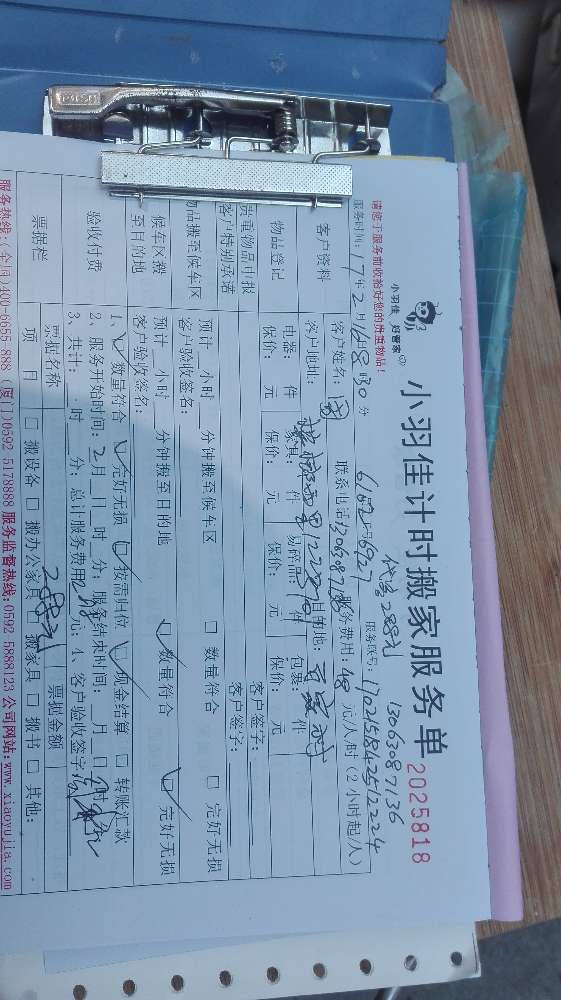 PUSH
请您于服务前收捡好您的贵重物品!
小羽佳 好管家
小羽佳计时搬家服务单 2025818
代金288元 13063087136
服务时间:17年2月16日8时30分
服务账号:
客户资料
客户姓名: 联系电话 服务费用:48元/人/时(2小时起/人)
客户地址: 目的地:
物品登记
电器: 件 家具: 件 易碎品: 件 包裹: 件
保价: 元 保价: 元 保价: 元 保价: 元
贵重物品申报 客户签字:
客户特别承诺 客户签字:
物品搬至候车区
预计 小时 分钟搬至候车区 □ 数量符合 □ 完好无损
客户验收签名:
候车区搬至目的地
预计 小时 分钟搬至目的地 ☑ 数量符合 ☑ 完好无损
客户验收签名:
验收付费
1、☑ 数量符合 ☑ 完好无损 ☑ 按需归位 ☑ 现金结算 □ 转账汇款
2、服务开始时间:2月 日 时 分;服务结束时间: 月 日 时
3、共计: 时 分;总计服务费用288元;4、客户验收签字
票据栏
票据名称 288元 票据金额
项目 □ 搬设备 □ 搬办公家具 □ 搬家具 □ 搬书 □ 其他:
服务热线:(全国)400-6655-888 (厦门)0592 5178888 服务监督热线:0592 5888123 公司网站:www.xiaoyujia.com